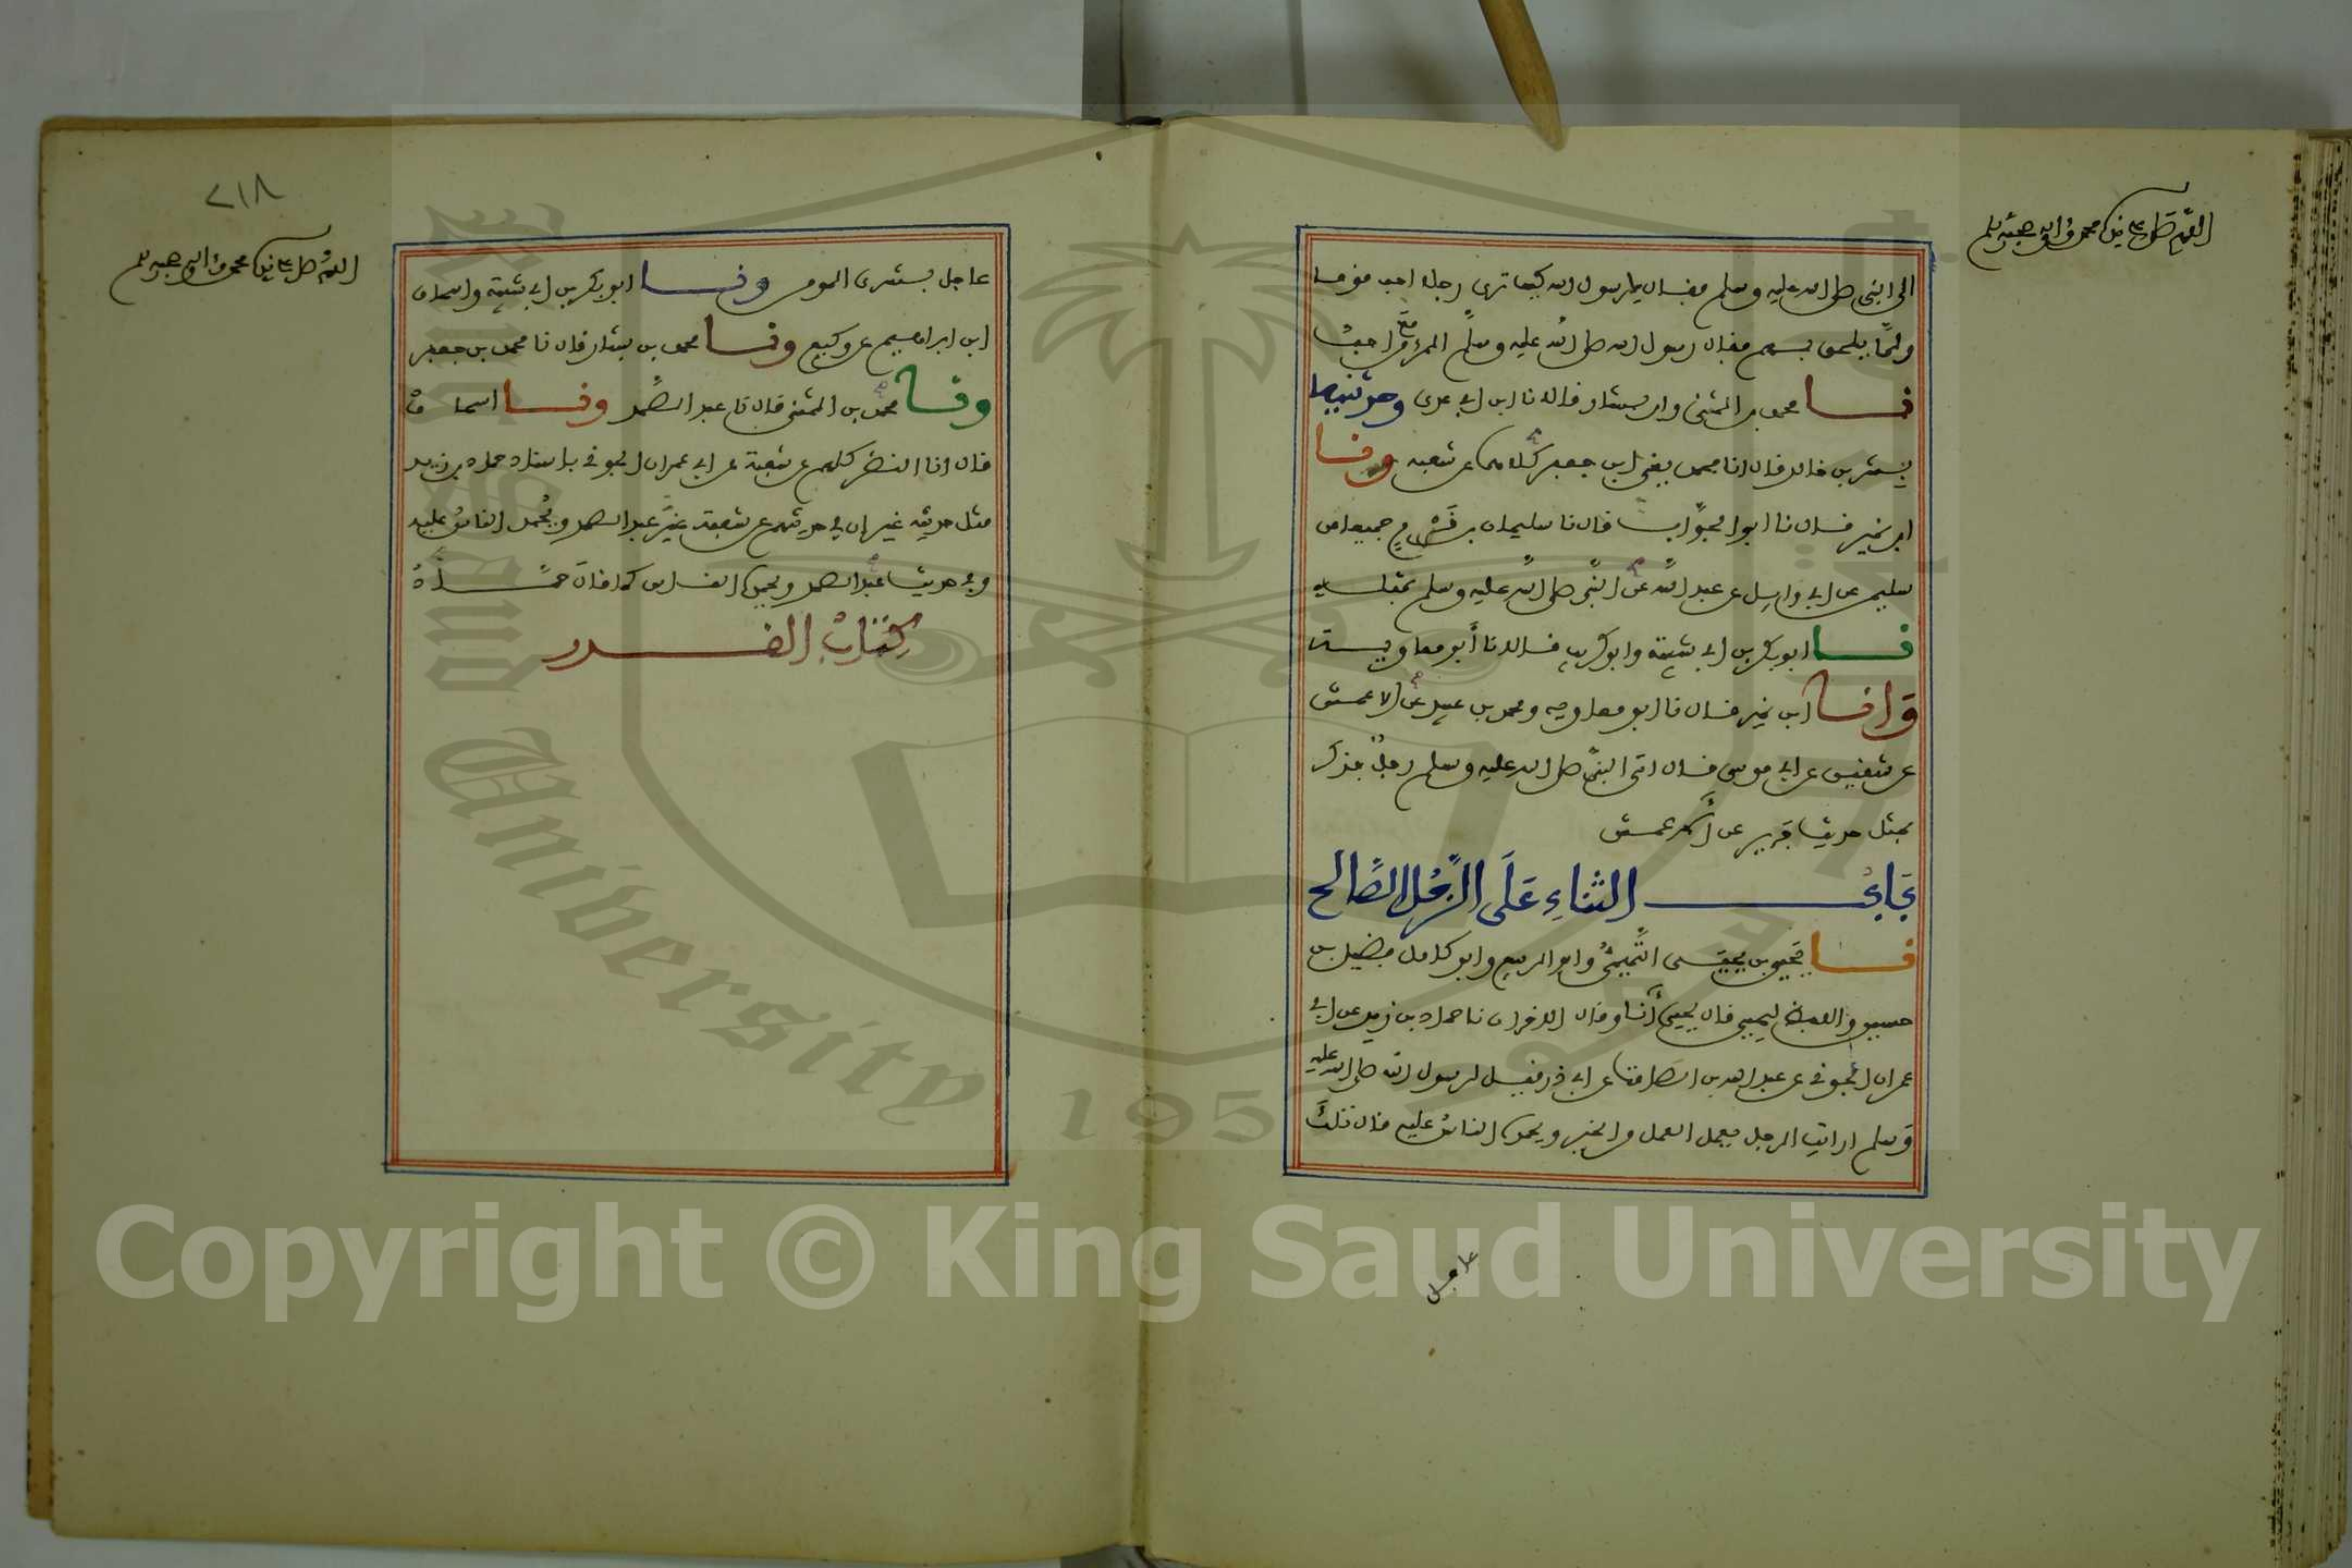 اللهم صل على سيدنا محمد وآله وصحبه وسلم
الى النبى صلى الله عليه وسلم فقال يا رسول الله كيف ترى رجلا احب قوما
ولمّا يلحق بهم فقال رسول الله صلى الله عليه وسلم المرء مع من احبّ
نا محمد بن المثنى وابن بشار قالا نا ابن ابى عدى وحدثنيه
بشر بن خالد قال انا محمد يعنى ابن جعفر كلاهما عن شعبه ونا
ابن نمير قال نا ابو الجوّاب قال نا سليمان بن قَرْم جميعا عن
سليمن عن ابى وايل عن عبد الله عن النبى صلى الله عليه وسلم بمثله
نا ابو بكر بن ابى شيبة وابو كريب قالا نا أبو معاوية
وَانا ابن نمير قال نا ابو معاويه ومحمد بن عبيد عن الاعمش
عن شقيق عن ابى موسى قال اتى النبىّ صلى الله عليه وسلم رجلٌ فذكر
بمثل حديث جرير عن الاعمش
بَابُ الثناءِ عَلَى الرَّجُل الصَّالح
نا يحيى بن يحيى التَّميمىُّ وابو الربيع وابو كامل فضيل بن
حسين واللفظ ليحيى قال يحيى أنا وقال الاخران نا حماد بن زيد عن ابى
عمران الجونى عن عبد الله بن الصامت عن ابى ذر قيل لرسول الله صلى الله عليه
وَسلم ارايت الرجل يعمل العمل من الخير ويحمده الناسُ عليه قال تلك
عاجل
٢١٨
اللهم صل على سيدنا محمد وآله وصحبه وسلم
عاجل بشرى المومن ونا ابو بكر بن ابى شيبة واسحاق
ابن ابراهيم عن وكيع ونا محمد بن بشار قال نا محمد بن جعفر
ونا محمد بن المثنى قال نا عبد الصمد ونا اسحاق
قال انا النضر كلهم عن شعبة عن ابى عمران الجونى باسناد حماد بن زيد
مثل حديثه غير ان فى حديثهم عن شعبة غيرَ عبد الصمد ويُحمده الناسُ عليه
وفى حديث عبد الصمد ويحمده الناس كما قال حمَّادٌ
كِتَابُ القدر
King Saud University
1957
Copyright © King Saud University